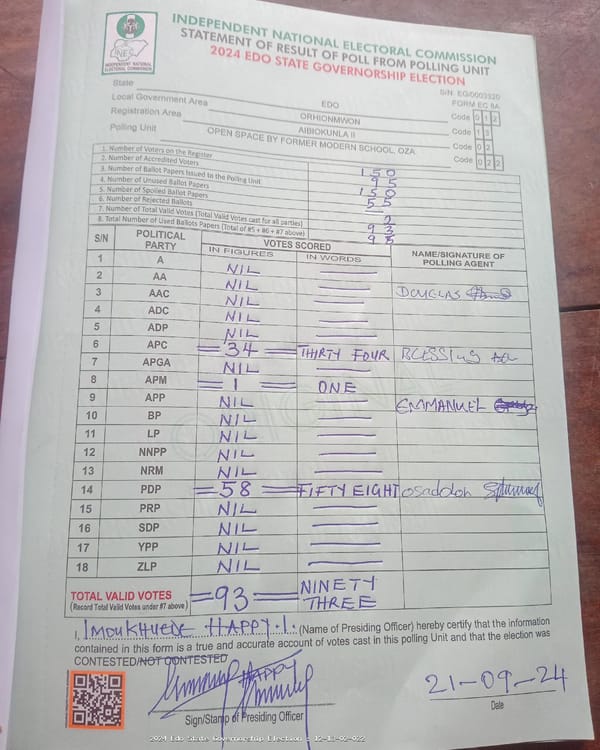 INDEPENDENT NATIONAL ELECTORAL COMMISSION
STATEMENT OF RESULT OF POLL FROM POLLING UNIT
2024 EDO STATE GOVERNORSHIP ELECTION
INEC
INDEPENDENT NATIONAL ELECTORAL COMMISSION
S/N. EG/0003320
FORM EC 8A
State EDO Code 0 1 2
Local Government Area ORHIONMWON Code 1 3
Registration Area AIBIOKUNLA II Code 0 2
Polling Unit OPEN SPACE BY FORMER MODERN SCHOOL, OZA Code 0 2 2
1. Number of Voters on the Register 150
2. Number of Accredited Voters 95
3. Number of Ballot Papers Issued to the Polling Unit 150
4. Number of Unused Ballot Papers 55
5. Number of Spoiled Ballot Papers —
6. Number of Rejected Ballots 2
7. Number of Total Valid Votes (Total Valid Votes cast for all parties) 93
8. Total Number of Used Ballots Papers (Total of #5 + #6 + #7 above) 95
S/N POLITICAL PARTY VOTES SCORED NAME/SIGNATURE OF POLLING AGENT
IN FIGURES IN WORDS
1 A NIL —
2 AA NIL —
3 AAC NIL — DOUGLAS
4 ADC NIL —
5 ADP NIL —
6 APC =34= THIRTY FOUR BLESSING
7 APGA NIL —
8 APM =1= ONE
9 APP NIL — EMMANUEL
10 BP NIL —
11 LP NIL —
12 NNPP NIL —
13 NRM NIL —
14 PDP =58= FIFTY EIGHT
15 PRP NIL —
16 SDP NIL —
17 YPP NIL —
18 ZLP NIL —
TOTAL VALID VOTES =93= NINETY THREE
(Record Total Valid Votes under #7 above)
I, IMOUKHUEDE HAPPY. I. (Name of Presiding Officer) hereby certify that the information
contained in this form is a true and accurate account of votes cast in this polling Unit and that the election was
CONTESTED/NOT CONTESTED
HAPPY
21-09-24
Sign/Stamp of Presiding Officer
Date
2024 Edo State Governorship Election - 12-13-02-022